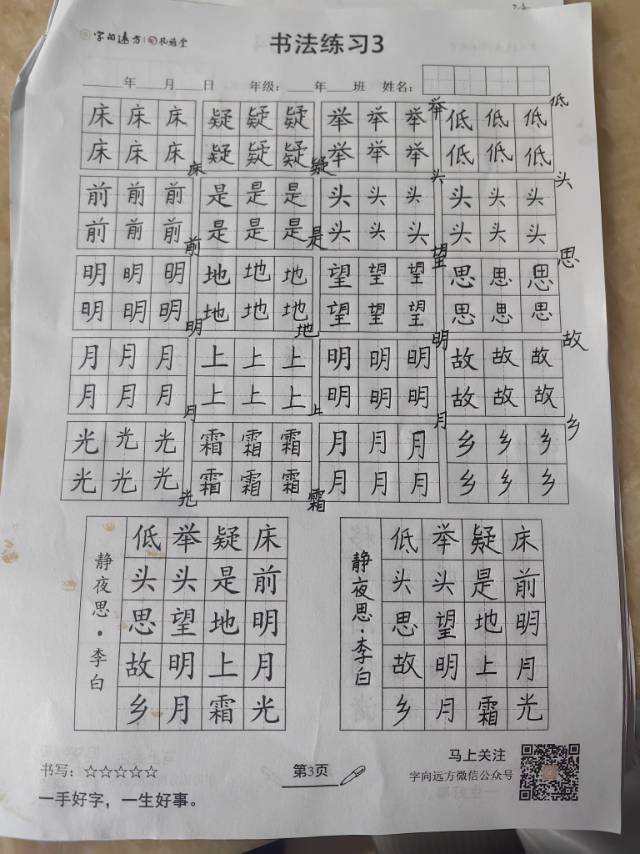 字向远方
书法练习3
____年____月____日 年级：____年____班 姓名：
床床床 疑疑疑 举举举举 低低低低
床床床床 疑疑疑疑 举举举 低低低
前前前 是是是 头头头头 头头头头
前前前前 是是是是 头头头 头头头
明明明 地地地 望望望望 思思思思
明明明明 地地地地 望望望 思思思
月月月 上上上 明明明明 故故故故
月月月月 上上上上 明明明 故故故
光光光 霜霜霜 月月月月 乡乡乡乡
光光光光 霜霜霜霜 月月月 乡乡乡
静夜思·李白
床前明月光
疑是地上霜
举头望明月
低头思故乡
静夜思·李白
床前明月光
疑是地上霜
举头望明月
低头思故乡
书写：☆☆☆☆☆
第3页
马上关注
字向远方微信公众号
一手好字，一生好事。